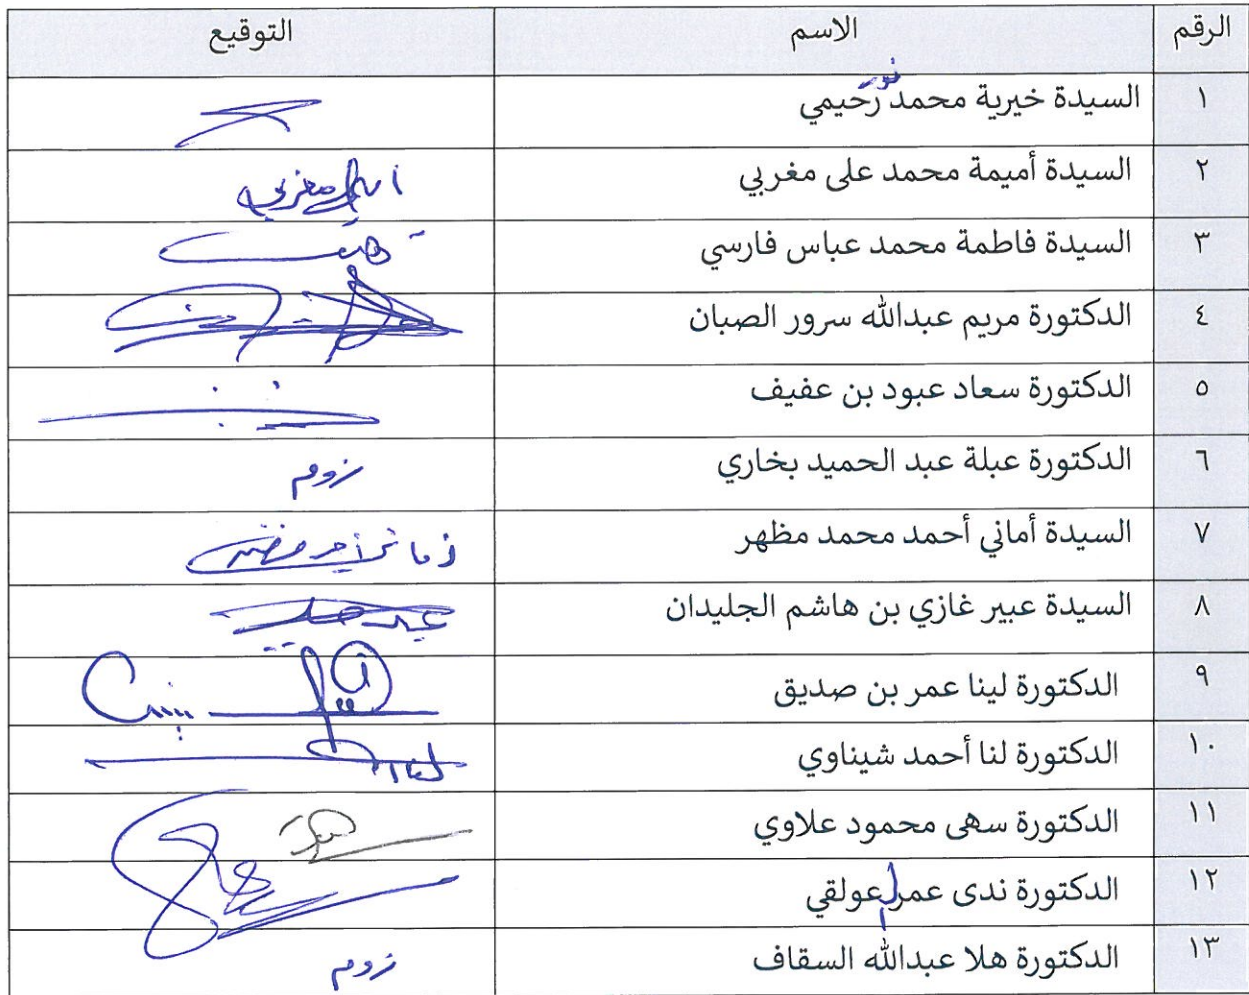 الرقم الاسم التوقيع
١ السيدة خيرية محمد نور رحيمي
٢ السيدة أميمة محمد على مغربي
٣ السيدة فاطمة محمد عباس فارسي
٤ الدكتورة مريم عبدالله سرور الصبان
٥ الدكتورة سعاد عبود بن عفيف
٦ الدكتورة عبلة عبد الحميد بخاري زووم
٧ السيدة أماني أحمد محمد مظهر
٨ السيدة عبير غازي بن هاشم الجليدان
٩ الدكتورة لينا عمر بن صديق
١٠ الدكتورة لنا أحمد شيناوي
١١ الدكتورة سهى محمود علاوي
١٢ الدكتورة ندى عمر العولقي
١٣ الدكتورة هلا عبدالله السقاف زووم